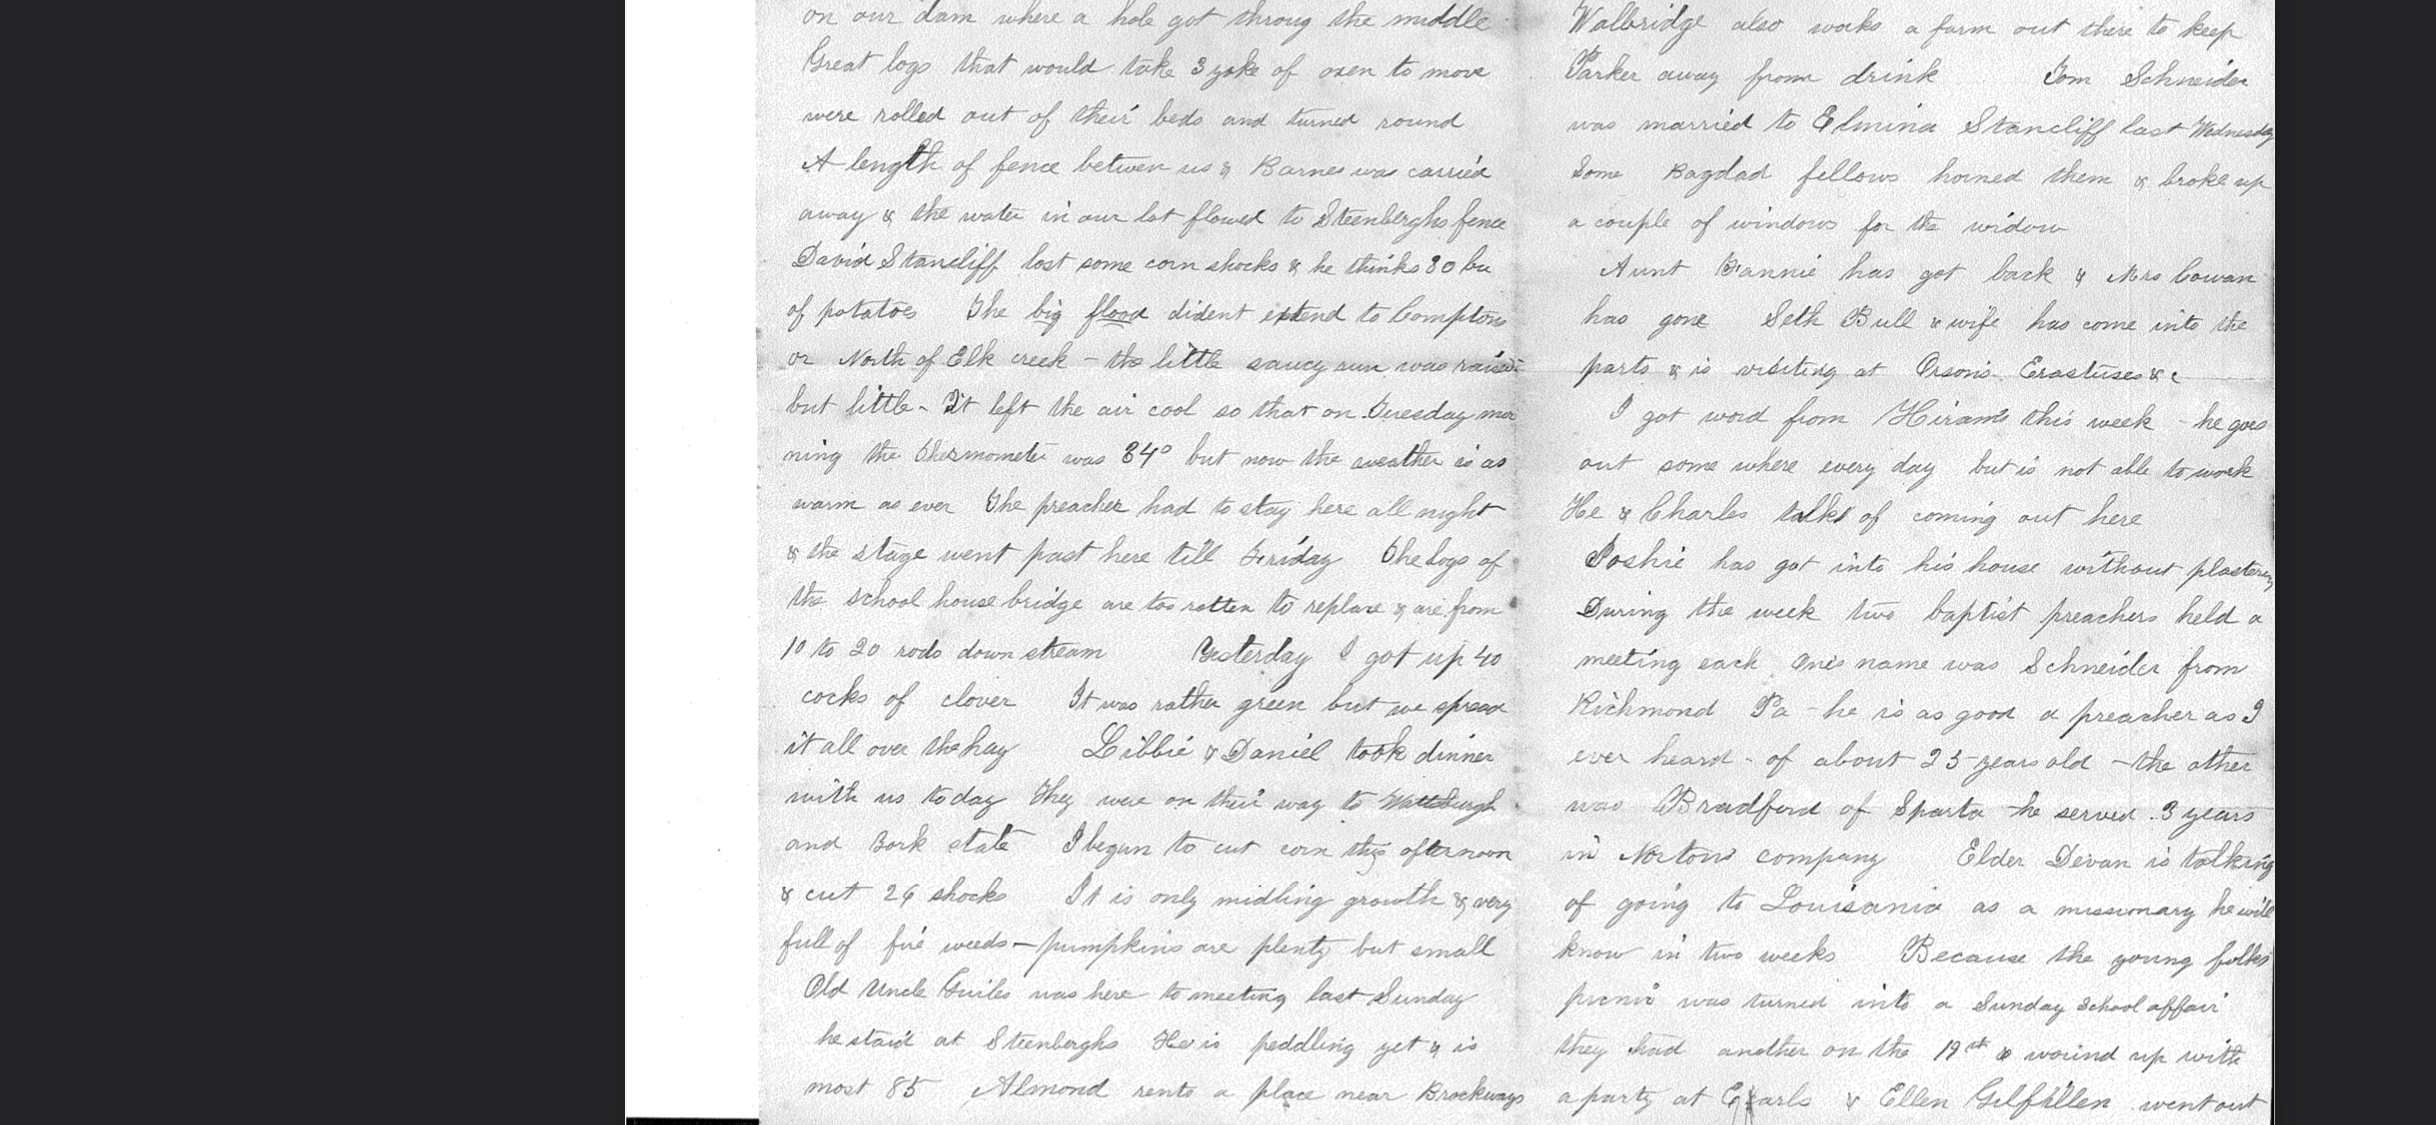 on our dam where a hole got throug the middle
Great logs that would take 3 yoke of oxen to move
were rolled out of their beds and turned round
A length of fence between us & Barnes was carried
away & the water in our lot flowed to Steenberghs fence
David Stancliff lost some corn shocks & he thinks 80 bu
of potatoes The big flood dident extend to Comptons
or North of Elk creek - the little saucy run was raised
but little - It left the air cool so that on Tuesday mor
ning the thermometer was 34° but now the weather is as
warm as ever The preacher had to stay here all night
& the stage went past here till Friday The logs of
the school house bridge are too rotten to replace & are from
10 to 20 rods down stream Yesterday I got up 40
cocks of clover It was rather green but we spread
it all over the hay Libbie & Daniel took dinner
with us today They were on their way to Wattsburgh
and York state I begun to cut corn this afternoon
& cut 26 shocks It is only midling growth & very
full of fire weeds - pumpkins are plenty but small
Old Uncle Guiles was here to meeting last Sunday
he staid at Steenberghs He is peddling yet & is
most 85 Almond rents a place near Brockways
Walbridge also works a farm out there to keep
Parker away from drink Tom Schneider
was married to Elmina Stancliff last Wednesday
Some Bagdad fellows horned them & broke up
a couple of windows for the widow
Aunt Fannie has got back & Mrs Cowan
has gone Seth Bull & wife has come into the
parts & is visiting at Orson's Erastuses &c
I got word from Hirams this week - he goes
out some where every day but is not able to work
He & Charles talks of coming out here
Joshie has got into his house without plastering
During the week two baptist preachers held a
meeting each One's name was Schneider from
Richmond Pa - he is as good a preacher as I
ever heard - of about 25 years old - the other
was Bradford of Sparta - he served 3 years
in Nortons company Elder Devan is talking
of going to Louisania as a missionary he will
know in two weeks Because the young folks
picnic was turned into a Sunday School affair
they had another on the 19st & wound up with
a party at Earls & Ellen Gilfillen went out